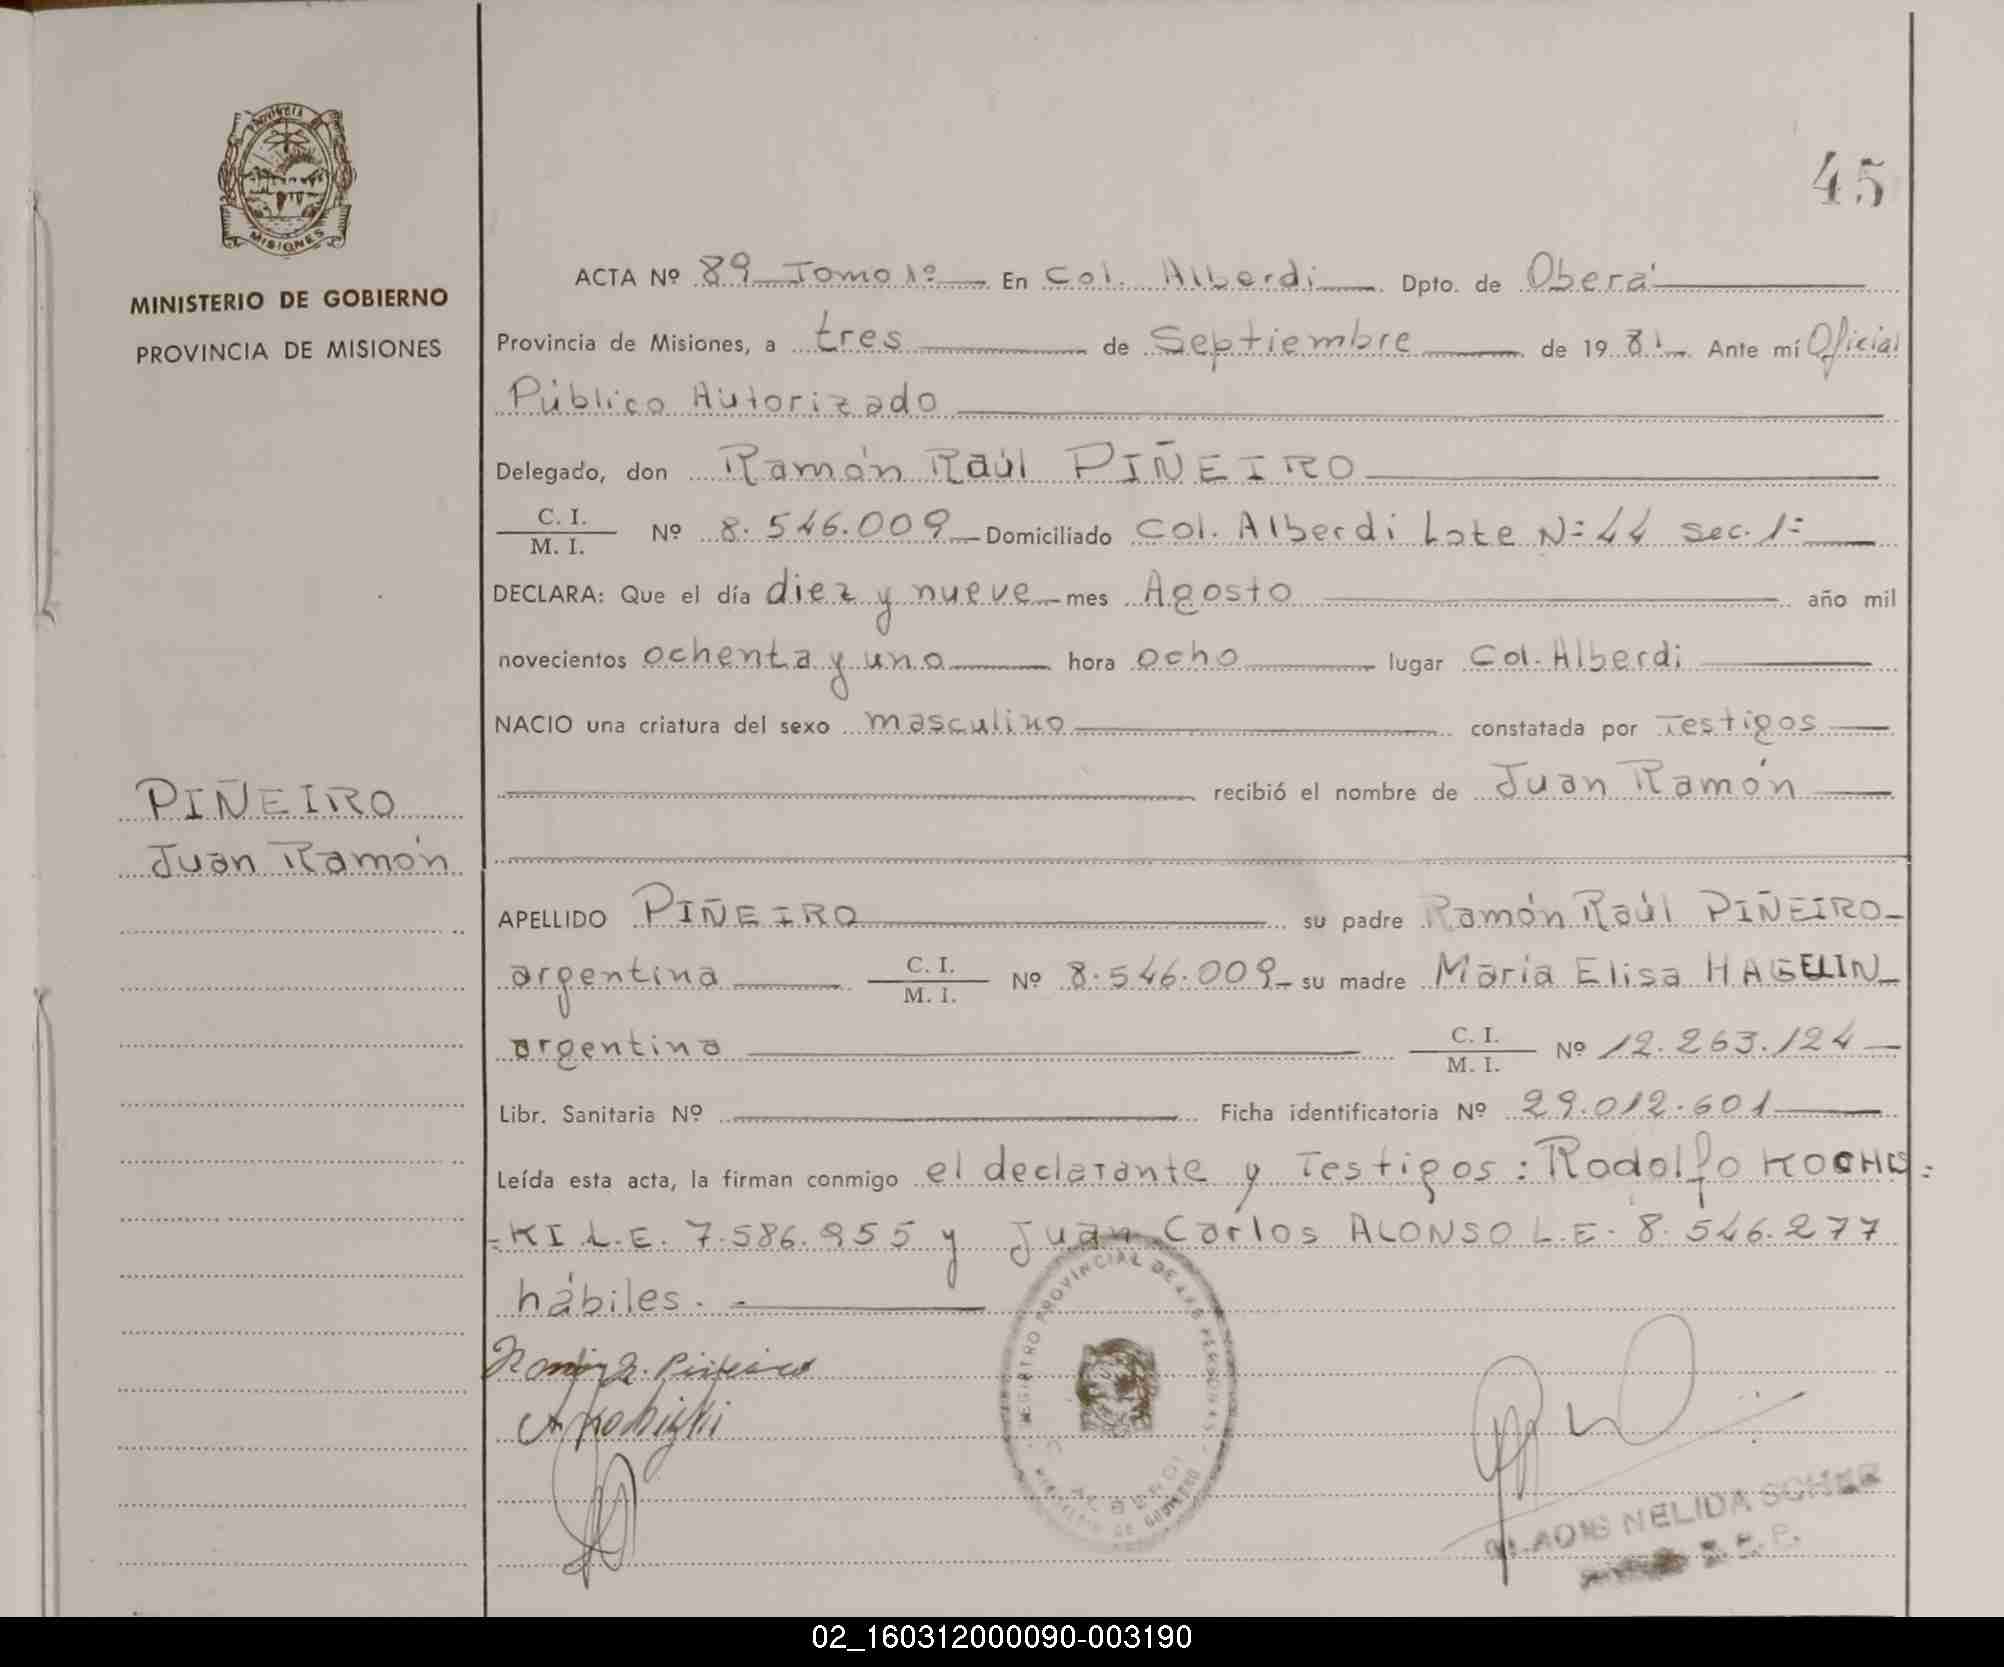 PROVINCIA
MISIONES
MINISTERIO DE GOBIERNO
PROVINCIA DE MISIONES
PIÑEIRO
Juan Ramón
45
ACTA Nº 89 Tomo 1º En Col. Alberdi Dpto. de Oberá
Provincia de Misiones, a tres de Septiembre de 1981 Ante mí Oficial
Público Autorizado
Delegado, don Ramón Raúl PIÑEIRO
C. I.
M. I. Nº 8.546.009 Domiciliado Col. Alberdi Lote Nº 44 Sec. 1ª
DECLARA: Que el día diez y nueve mes Agosto año mil
novecientos ochenta y uno hora ocho lugar Col. Alberdi
NACIO una criatura del sexo masculino constatada por Testigos
recibió el nombre de Juan Ramón
APELLIDO PIÑEIRO su padre Ramón Raúl PIÑEIRO
argentina C. I. M. I. Nº 8.546.009 su madre María Elisa HAGELIN
argentina C. I. M. I. Nº 12.263.124
Libr. Sanitaria Nº Ficha identificatoria Nº 29.012.601
Leída esta acta, la firman conmigo el declarante y Testigos: Rodolfo KOCHS=
=KI L.E. 7.586.955 y Juan Carlos ALONSO L.E. 8.546.277
hábiles.-
REGISTRO PROVINCIAL DE LAS PERSONAS
MINISTERIO DE GOBIERNO
NELIDA
02_160312000090-003190